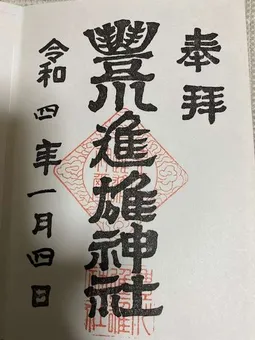 奉拝
豐川進雄神社
令和四年一月四日